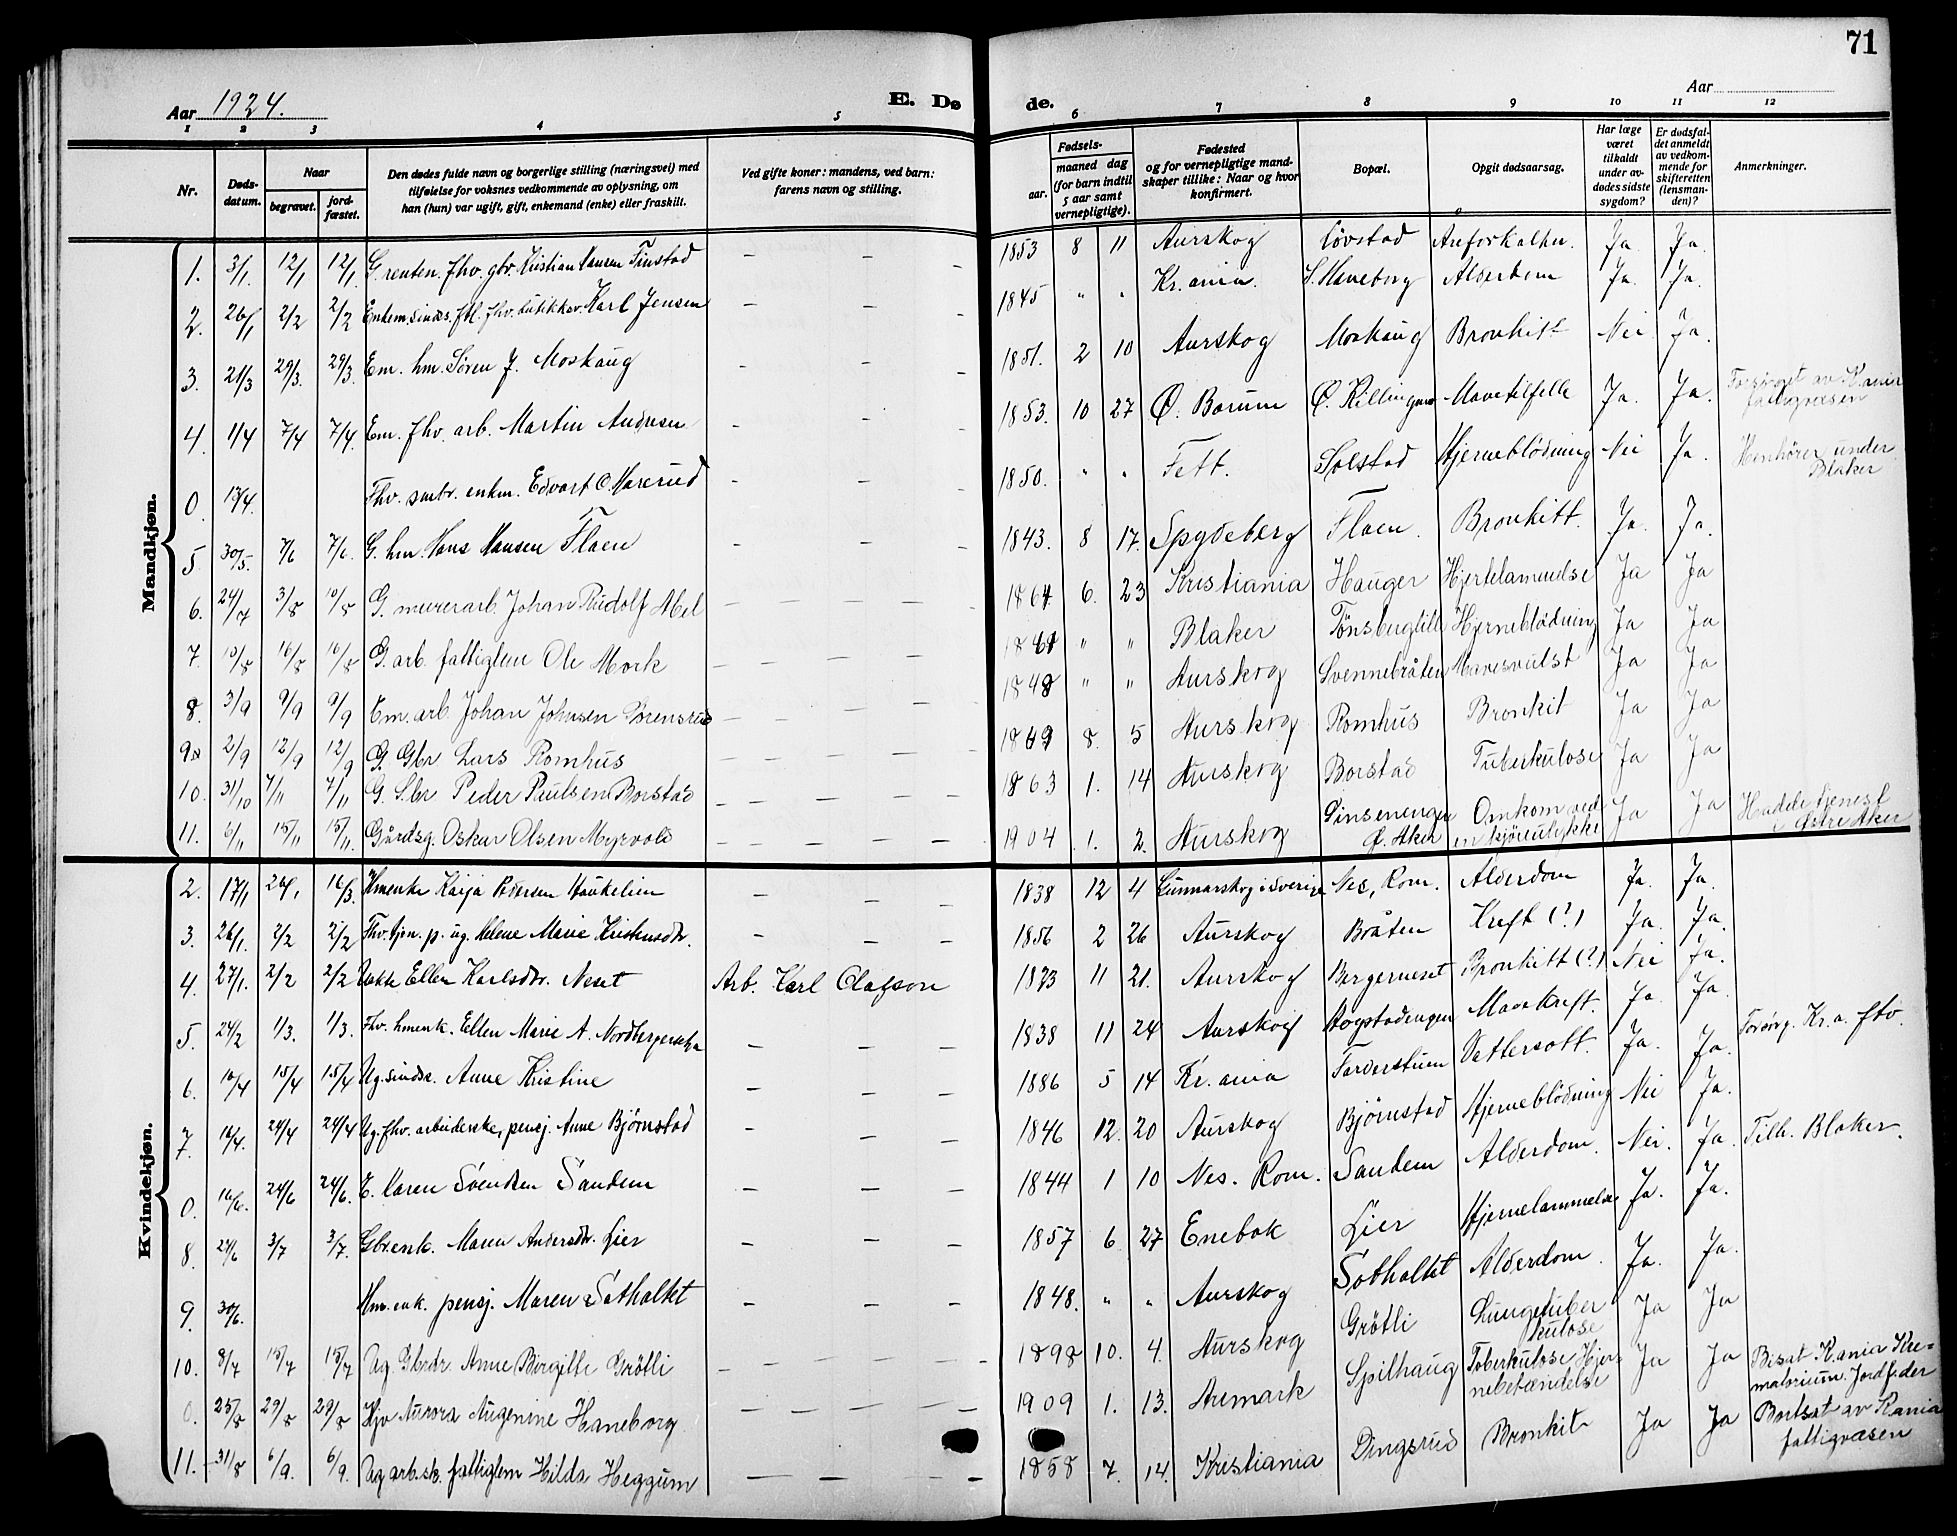 71
Aar 1924.
E. Dø
de.
Aar
1 2 3 4 5 6 7 8 9 10 11 12
Nr.
Døds-
datum.
Naar
begravet.
jord-
fæstet.
Den dødes fulde navn og borgerlige stilling (næringsvei) med
tilføielse for voksnes vedkommende av oplysning, om
han (hun) var ugift, gift, enkemand (enke) eller fraskilt.
Ved gifte koner: mandens, ved barn:
farens navn og stilling.
Fødsels-
aar.
maaned dag
(for barn indtil
5 aar samt
vernepligtige).
Fødested
og for vernepligtige mand-
skaper tillike: Naar og hvor
konfirmert.
Bopæl.
Opgit dødsaarsag.
Har læge
været
tilkaldt
under av-
dødes sidste
sygdom?
Er dødsfal-
det anmeldt
av vedkom-
mende for
skifteretten
(lensman-
den)?
Anmerkninger.
Mandkjøn.
1. 3/1. 12/1 12/1. G. renten. fhv. gbr. Kristian Hansen Finstad — — — 1853 8 11 Aurskog Løvstad Aareforkalkn. Ja. Ja.
2. 26/1 2/2 2/2 Enkem. sindss. ftl. fhv. butikkev. Karl Jensen — — — 1845 " " Kr.ania. S. Haneborg Alderdom Ja. Ja.
3. 21/3 29/3. 29/3. Em. hm. Søren J. Moskaug — — — 1851. 2 10 Aurskog Moskaug Bronkitt Nei Ja.
4. 1/4 7/4 7/4. Em. fhv. arb. Martin Andresen — — — 1853. 10 27 Ø. Bærum Ø. Killingmo Mavetilfelle Ja. Ja. Forsörget av Kania
fattigvæsen
0. 13/4. Fhv. smbr. enkm. Edvart O. Mærerud — — — 1850. " " Fett. Solstad Hjerneblödning Nei Ja. Henhörer under
Blaker
5 30/5. 7/6 7/6. G. hm. Hans Hansen Flaen — — — 1843. 8 17. Spydeberg Flaen. Bronkitt. Ja. Ja.
6. 24/7 3/8 10/8 G. murerarb. Johan Rudolf Abel — — — 1864 6. 23 Kristiania Hauger Hjertelammelse Ja Ja
7. 10/8 16/8 16/8 G. arb. fattiglem Ole Mork — — — 1861 " " Blaker Tönsberglill Hjerneblödning Ja Ja
8. 3/9 9/9 9/9 Em. arb. Johan Johnsen Sörensrud — — — 1848 " " Aurskog Svennebråten Mavesvulst Ja Ja
9. 2/9 12/9 12/9 G. Gbr Lars Romhus — — — 1869 8. 5 Aurskog Romhus Bronkit Ja Ja
10. 31/10 7/11 7/11 G. S.br Peder Paulsen Borstad — — — 1863 1. 14 Aurskog Borstad Tuberkulose Ja Ja
11. 6/11 15/11 15/11. Gårdsg. Oskar Olsen Myrvold — — — 1904 1. 2. Aurskog Sinsenengen
Ø. Aker Omkom ved
en kjöreulykke Ja Ja Hadde tjenest
i Østre Aker
Kvindekjøn.
2. 17/1 26/1 16/3. Hmenke Kaija Pedersen Haukelien — — — 1838 12 4 Gunnarskog i Sverige Nes, Rom. Alderdom Ja. Ja.
3. 26/1. 2/2 2/2 Fhv. tjen. p. ug. Helene Marie Kristensdtr. — — — 1856 2 26 Aurskog Bråten Kreft (?) Ja. Ja.
4. 27/1. 2/2 2/2 Ellen Karlsdtr. Neset Arb. Karl Olafson 1893 11 21. Aurskog Bergerneset Bronkitt (?) Nei Ja.
5. 24/2 1/3. 1/3. Fhv. hmenk. Ellen Marie A. Nordbergersetra — — — 1838 11 24 Aurskog Rogstadengen Mavekreft. Ja. Ja.
6. 10/4 15/4 15/4 Ug. sindss. Anne Kristine — — — 1886 5 14 Kr.ania Vattersott. Ja. Ja. Forsörg. Kr.a. ftv.
7. 16/4. 24/4 24/4 Ug. fhv. arbeiderske, pensj. Anne Bjørnstad — — — 1846 12. 20 Aurskog Bjørnstad Hjerneblödning Nei Ja.
0. 16/6. 24/6 24/6. E. Karen Svendsen Sandem — — — 1844 1 10 Nes. Rom. Sandem Alderdom. Nei. Ja. Tilh. Blaker.
8. 28/6 3/7 3/7. Gbrenk. Maren Andersdtr. Lier — — — 1857 6 27 Enebak Lier Hjernelammelse Ja. Ja.
9. 30/6. Hm. enk. pensj. Maren Sotholtet — — — 1848. " " Aurskog Sotholtet Alderdom. Ja. Ja.
10. 8/7 15/7 15/7 Ug Gbrdr. Anne Birgitte Grötli — — — 1898 10. 4. Aurskog Grötli Lungetuber
kulose Ja Ja
0. 25/8 29/8 29/8 Hjv Aurora Augenine Haneborg — — — 1909 1. 13. Aremark Spilhaug Tuberkulose Hjer-
nebetændelse Ja Ja Bisat Kania Kre-
matorium. Jordf. der
11. 31/8 6/9. 6/9. Ug arb.sk. fattiglem Hilda Heggum — — — 1858 7. 14. Kristiania Dingsrud Bronkit Ja Ja Bortsat av Kania
fattigvæsen